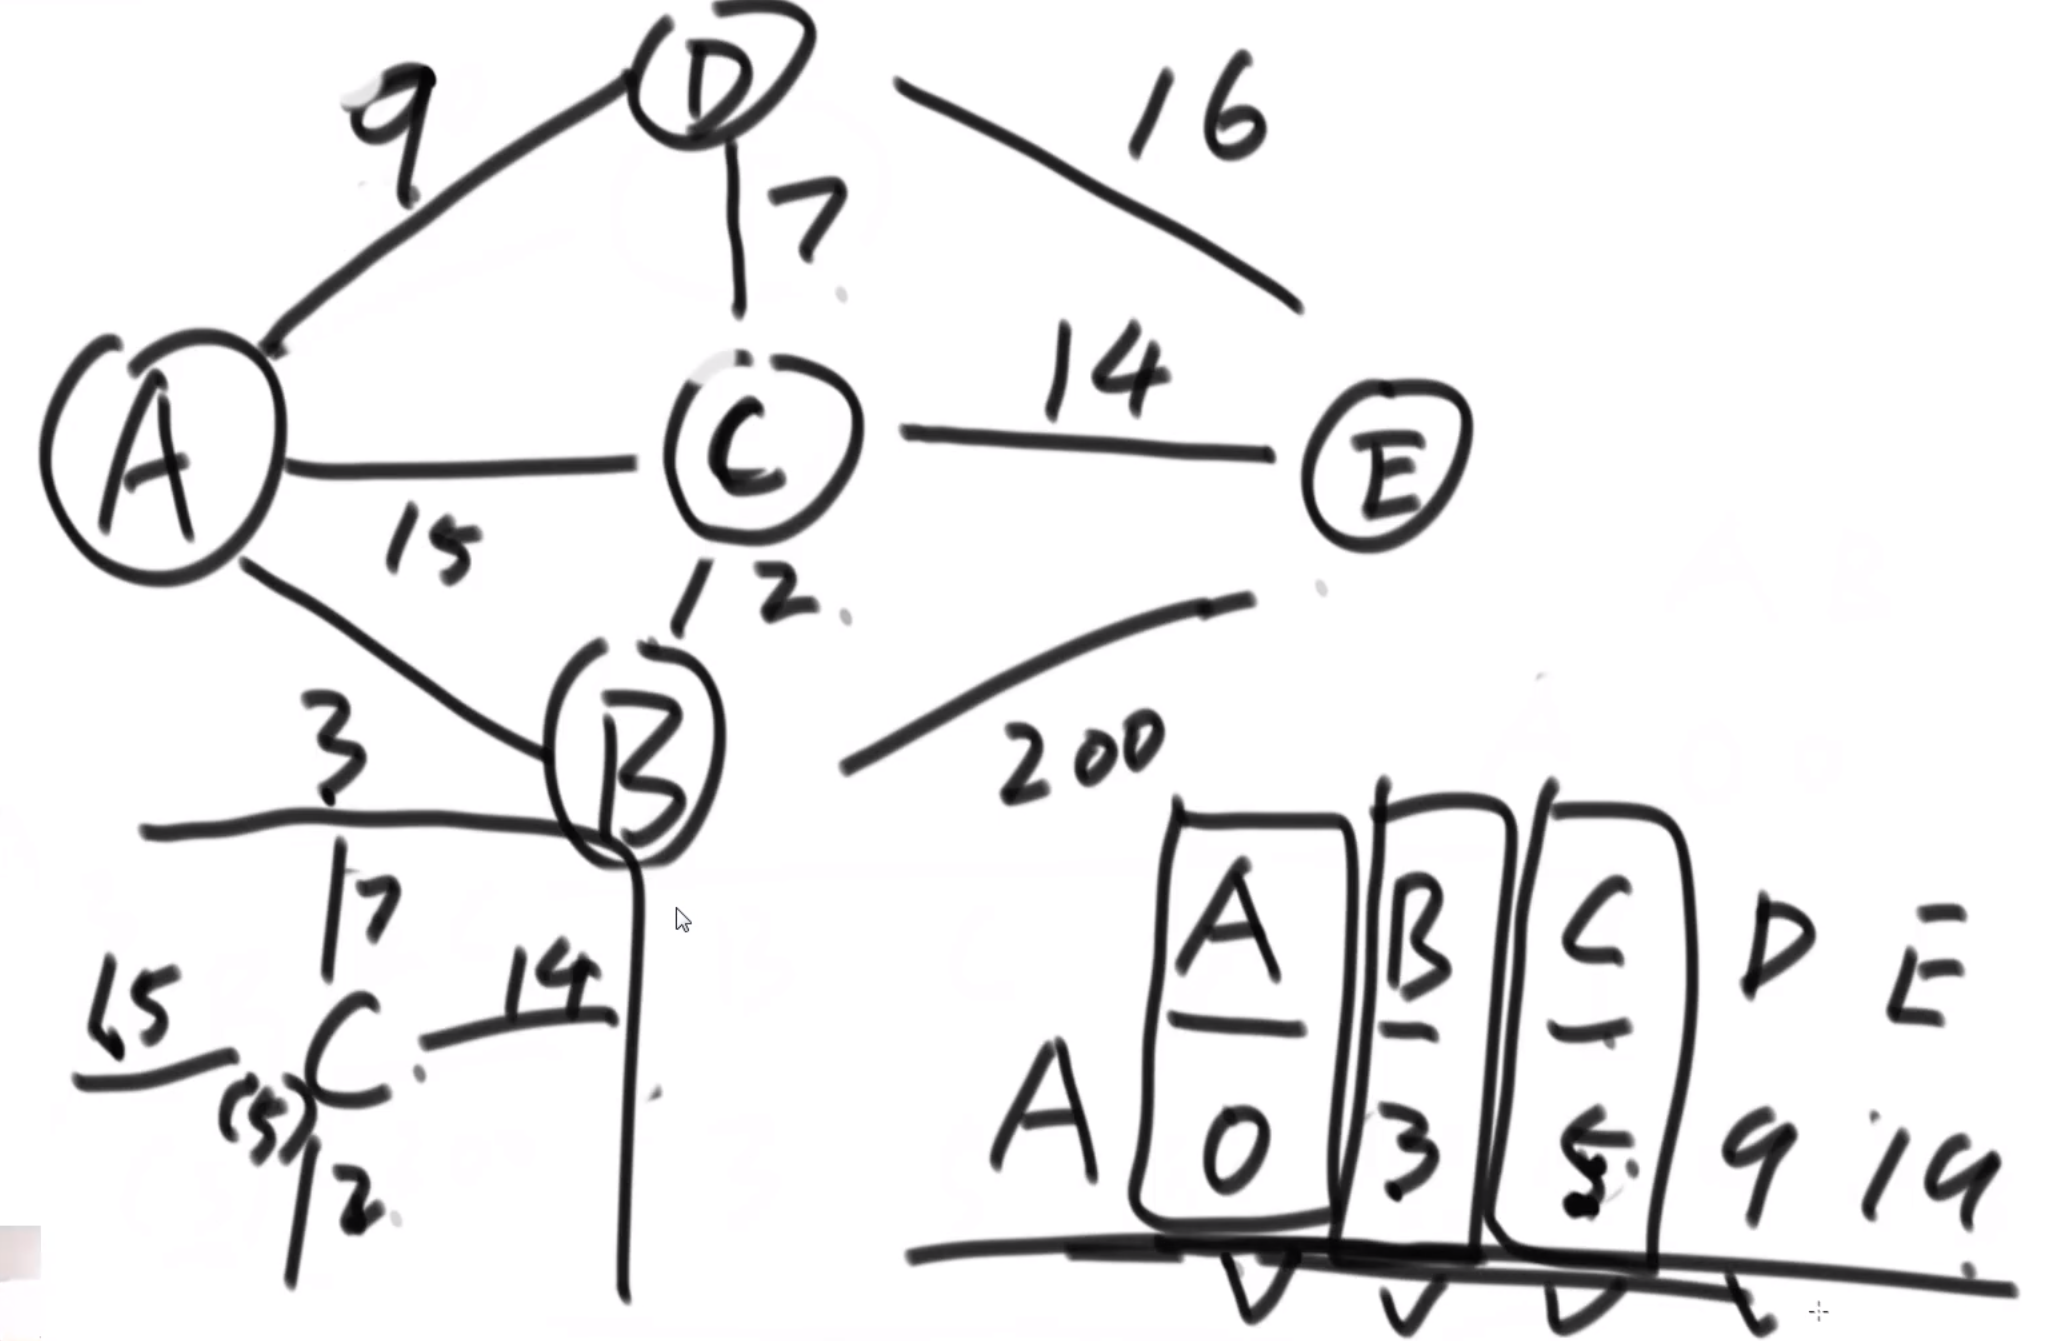 D
9
16
7
A
C
14
E
15
2
B
3
200
7
15
C
14
(5)
2
A B C D E
A 0 3 5 9 19